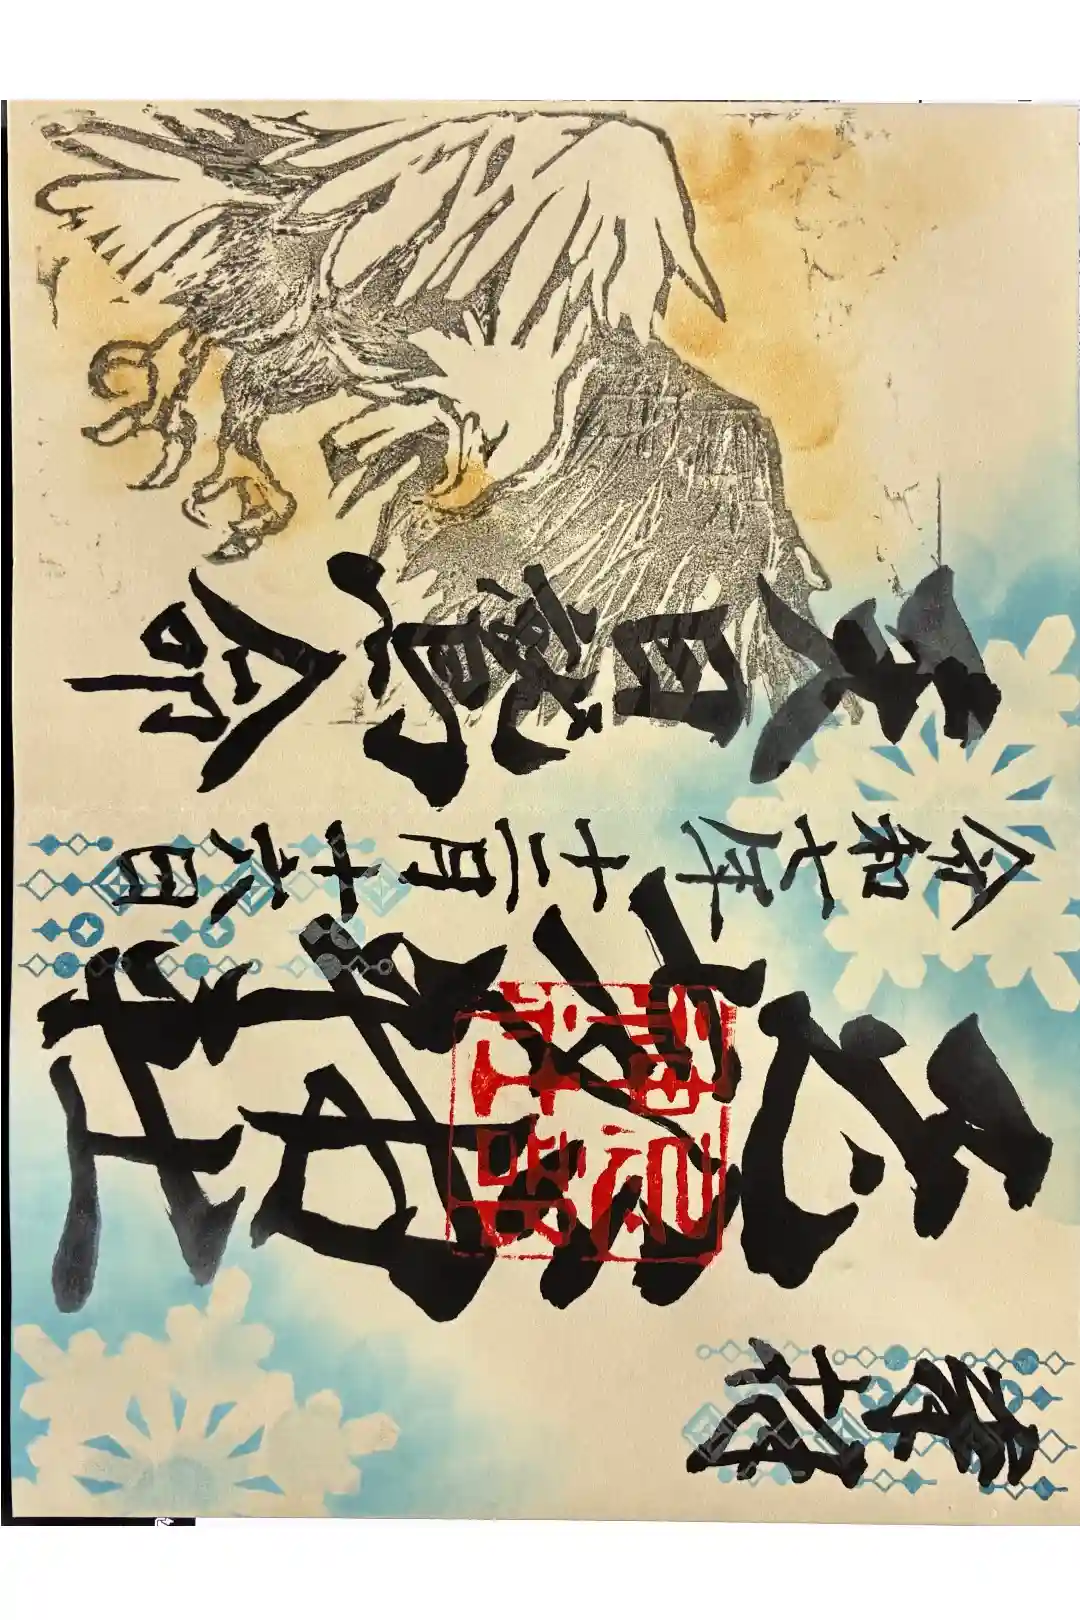 奉拝
神社
令和七年十二月十六日
天日鷲命